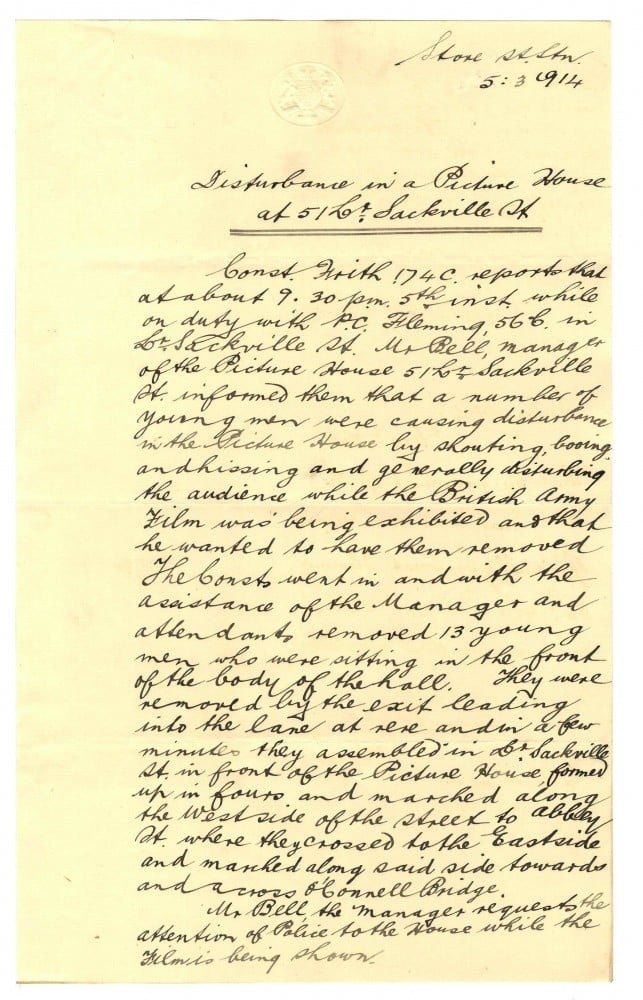 Store St. Stn.
5:3 1914
Disturbance in a Picture House
at 51 Lr. Sackville St
Const. Frith 174C. reports that
at about 9.30 p.m. 5th inst, while
on duty with P.C. Fleming, 56C. in
Lr. Sackville St. Mr Bell, manager
of the Picture House 51 Lr. Sackville
St. informed them that a number of
young men were causing disturbance
in the Picture House by shouting, booing
and hissing and generally disturbing
the audience while the British Army
Film was being exhibited and that
he wanted to have them removed
The Consts went in and with the
assistance of the Manager and
attendants removed 13 young
men who were sitting in the front
of the body of the hall. They were
removed by the exit leading
into the lane at rere and in a few
minutes they assembled in Lr. Sackville
St. in front of the Picture House, formed
up in fours and marched along
the West side of the street to Abbey
St. where they crossed to the East side
and marched along said side towards
and across O'Connell Bridge.
Mr. Bell, the manager requests the
attention of Police to the House while the
Film is being shown.